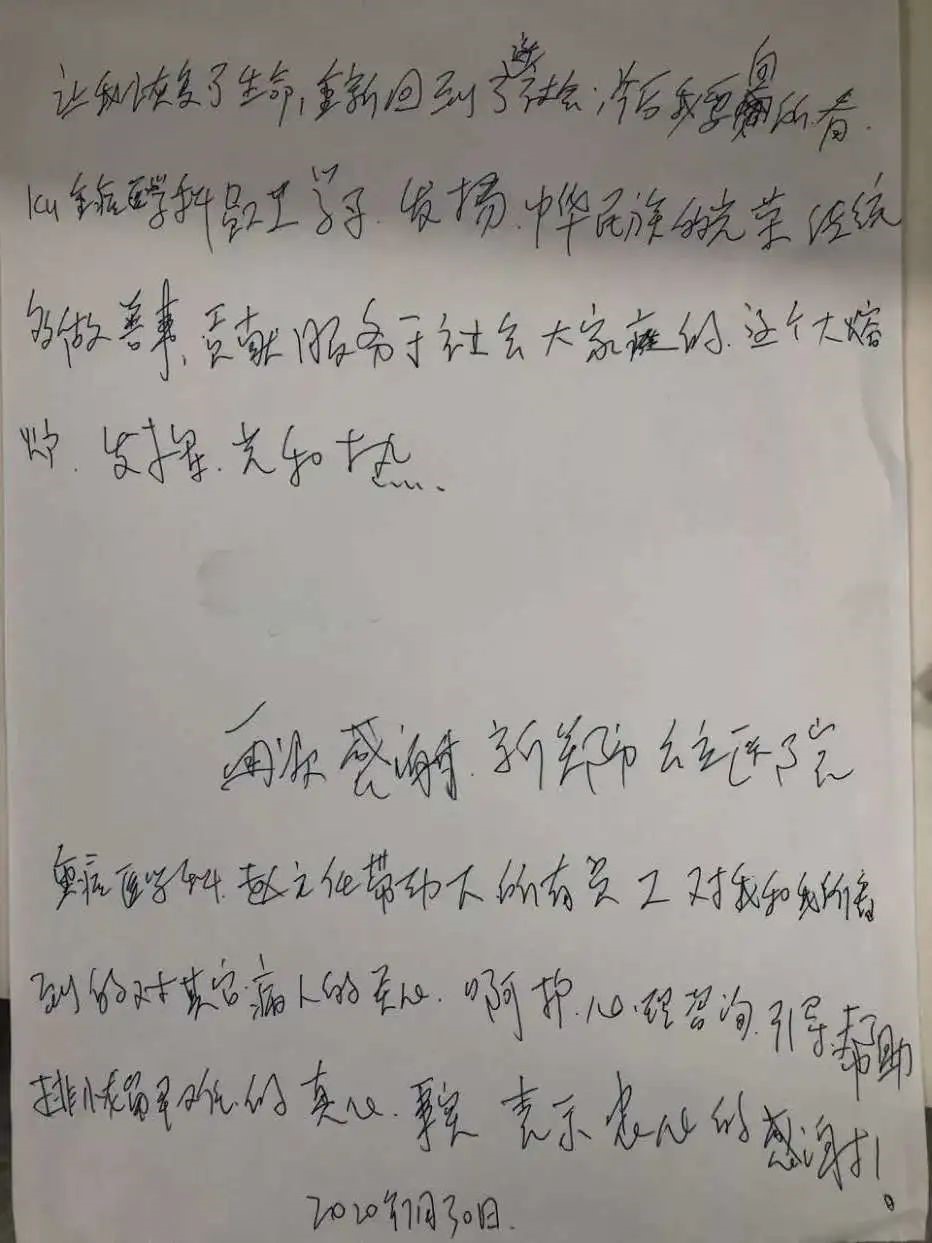 让我恢复了生命,重新回到了这社会,今后我要向所有
Icu重症医学科员工学子.发扬.中华民族的光荣传统
多做善事,贡献服务于社会大家庭的.这个大熔
炉.发挥.光和热.
再次感谢.新郑市公立医院
重症医学科.赵主任带动下所有员工对我和我所看
到的对其它病人的关心.呵护.心理咨询.引导.帮助
排忧解难的真心.表示衷心的感谢!
2020年7月30日.